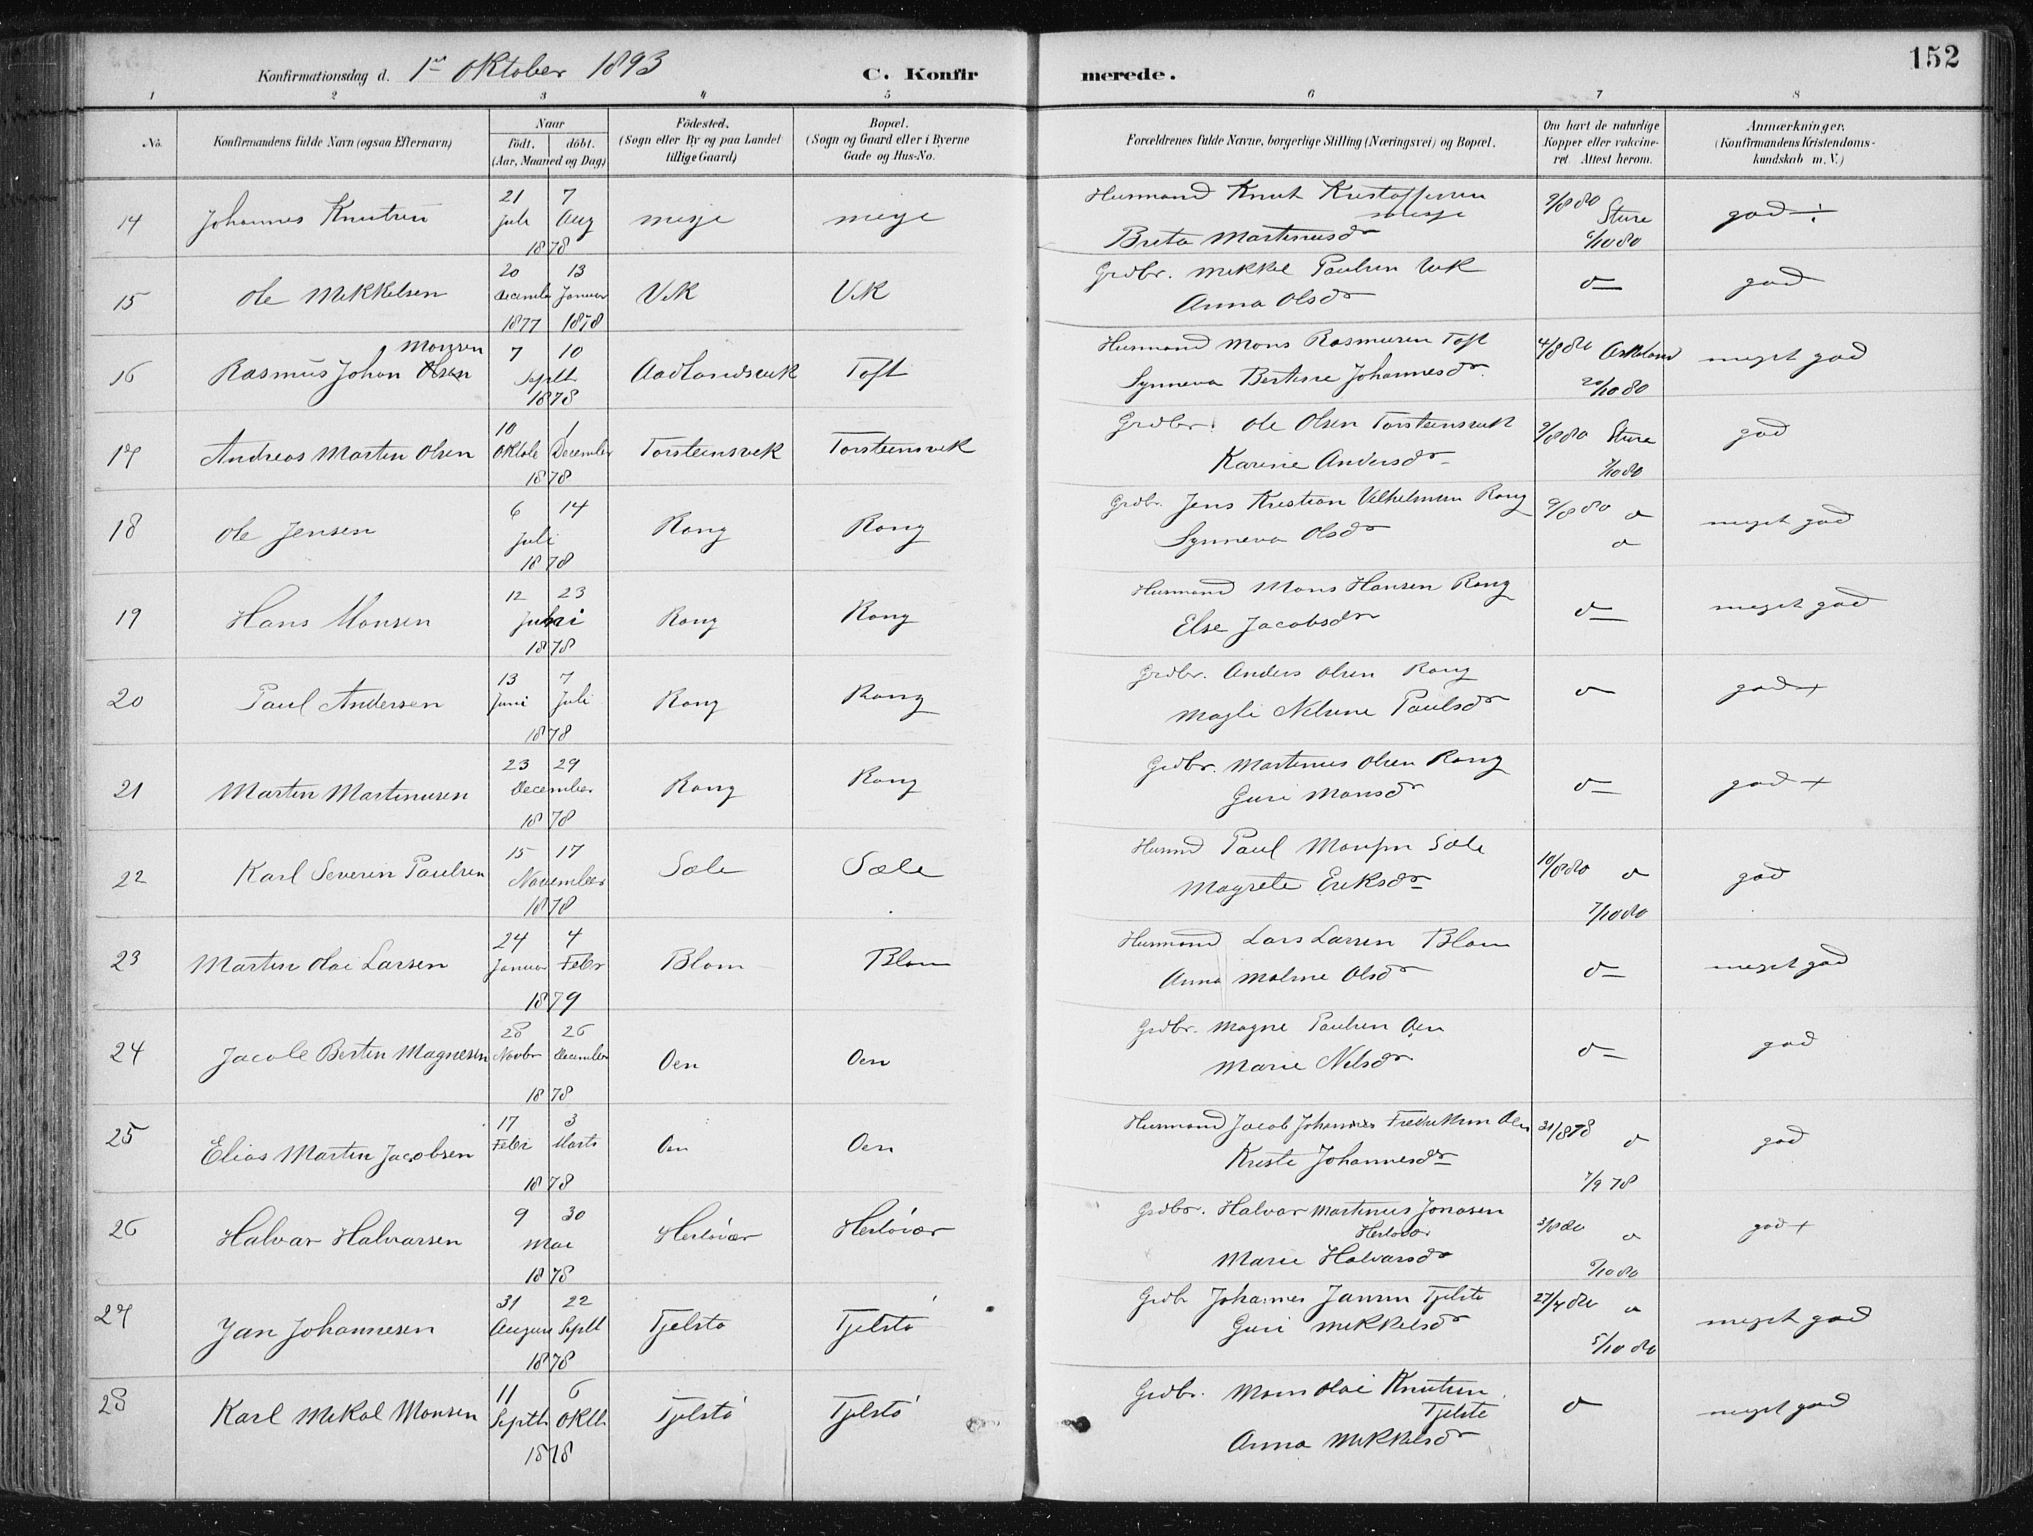 152
Konfirmationsdag d. 1ste Oktober 1893 C. Konfirmerede.
1 2 3 4 5 6 7 8
No. Konfirmandens fulde Navn (ogsaa Efternavn) Naar Födt. döbt. (Aar, Maaned og Dag) Födested. (Sogn eller By og paa Landet tillige Gaard) Bopæl. (Sogn og Gaard eller i Byerne Gade og Hus-No. Forældrenes fulde Navne, borgerlige Stilling (Næringsvei) og Bopæl. Om havt de naturlige Kopper eller vakcineret. Attest herom. Anmærkninger. (Konfirmandens Kristendomskundskab m. V.)
14 Johannes Knutsen 21 Juli 7 Aug 1878 misje misje Husmand Knut Kristoffersen misje 9/8 80 Sture god ÷
Brita Martinusdr 6/10 80
15 Ole Mikkelsen 20 December 1877 13 Januar 1878 Vik Vik Grdbr. Mikkel Paulsen Vik d— god
Anna Olsdr
16 Rasmus Johan Olsen Monsen 7 10 Septb 1878 Aadlandsvik Toft Husmand Mons Rasmusen Toft 4/8 80 Askeland meget god
Synneva Bertine Johannesdr. 20/10 80
17 Andreas Martin Olsen 10 Oktob 1 December 1878 Torsteinsvik Torsteinsvik Grdbr. Ole Olsen Torsteinsvik 9/8 80 Sture god
Karine Andersdr 7/10 80
18 Ole Jensen 6 14 Juli 1878 Rong Rong Grdbr. Jens Kristian Vilhelmsen Rong 9/8 80 d meget god
Synneva Olsdr d
19 Hans Monsen 12 23 Juni 1878 Rong Rong Husmand Mons Hansen Rong d— meget god
Else Jacobsdr
20 Paul Andersen 13 Juni 7 Juli 1878 Rong Rong Grdbr. Anders Olsen Rong d god +
Magli Nilsine Paulsdr
21 Martin Martinusen 23 29 December 1878 Rong Rong Grdbr. Martinus Olsen Rong d— god +
Guri Monsdr
22 Karl Severin Paulsen 15 17 November 1878 Sæle Sæle Husmd Paul Monsen Sæle 10/8 80 d god
Magrete Eriksdr 7/10 80
23 Martin Olai Larsen 24 Januar 4 Febr 1879 Blom Blom Husmand Lars Larsen Blom d— meget god
Anna Maline Olsdr
24 Jacob Bertin Magnesen 28 Novbr 26 December 1878 Oen Oen Grdbr. Magne Paulsen Oen d— god
Marie Nilsdr
25 Elias Martin Jacobsen 17 Febr 3 Marts 1878 Oen Oen Husmand Jacob Johannes Fredriksen Oen 31/8 78 d god
Kristi Johannesdr 7/9 78
26 Halvar Halvarsen 9 30 Mai 1878 Herlövær Herlövær Grdbr. Halvar Martinus Jonasen Herlövær d god +
Marie Halvarsdr 9/10 80
27 Jan Johannesen 31 August 22 Septb 1878 Tjelstö Tjelstö Grdbr Johannes Jansen Tjelstö 27/7 80 d meget god
Guri Mikkelsdr 5/10 80
28 Karl Mikal Monsen 11 Septb 6 Oktb 1878 Tjelstö Tjelstö Grdbr. Mons Olai Knutsen Tjelstö d meget god
Anna Mikkelsdr